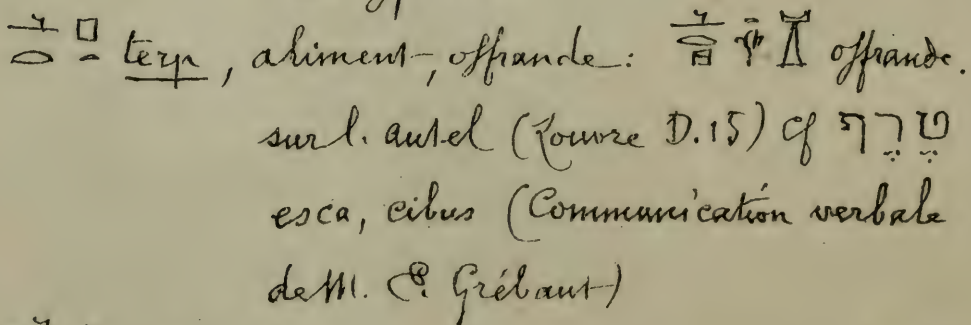 terp, aliment, offrande: offrande.
sur l. autel (Louvre D.15) cf טֶרֶף
esca, cibus (Communication verbale
de M. E. Grébaut)